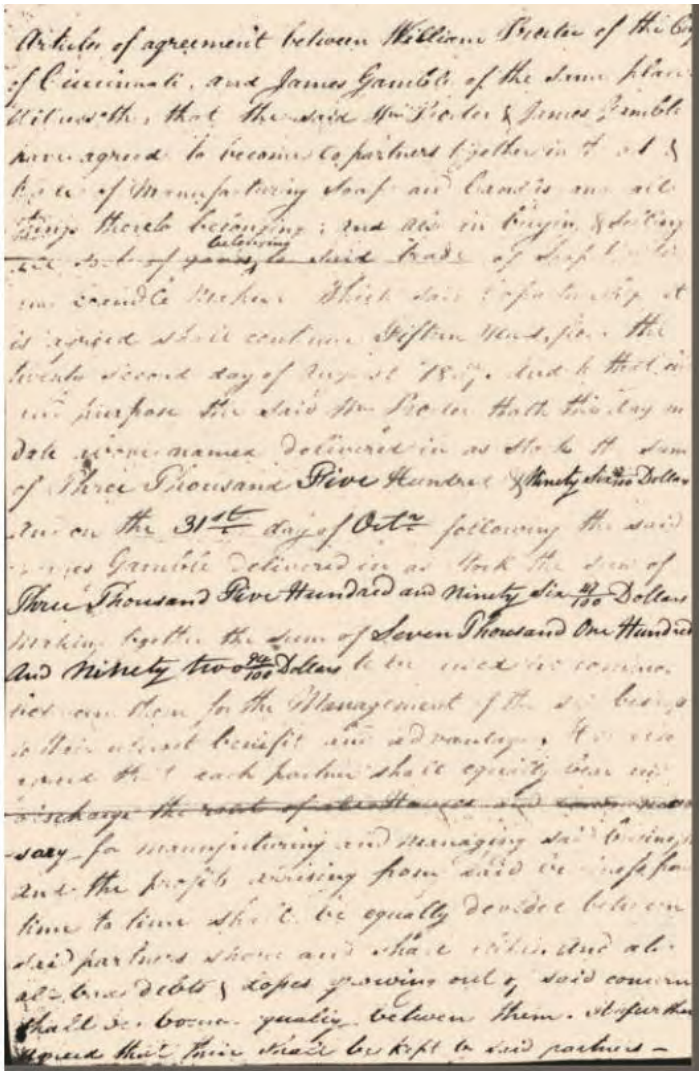 Articles of agreement between William Procter of the City
of Cincinnati, and James Gamble of the same place
Witnesseth, that the said Wm Procter & James Gamble
have agreed to become Copartners together in &
of Manufacturing Soap and Candles and all
things thereto belonging; and also in buying & selling
belonging
to said trade of Soap
and Candle Makers Which said Copartnership it
is agreed shall continue Fifteen Years, from the
twenty second day of August 1837. And to that
and purpose the said Wm Procter hath this day
Date above named delivered in as stock the sum
of Three Thousand Five Hundred & Ninety Six Dollars
And on the 31st day of Octr following the said
James Gamble delivered in as stock the sum of
Three Thousand Five Hundred and Ninety Six 47/100 Dollars
Making together the sum of Seven Thousand One Hundred
And Ninety two 94/100 Dollars to be used in common
between them for the Management of the said business
to their interest benefit and advantage. It is also
agreed that each partner shall equally bear and
discharge the rent of and
sary for manufacturing and managing said business
and the profits arrising from said business from
time to time shall be equally devided between
said partners share and share alike. And also
all bad debts & Losses growing out of said concern
shall be borne equaly between them. it further
agreed that their shall be kept by said partners —